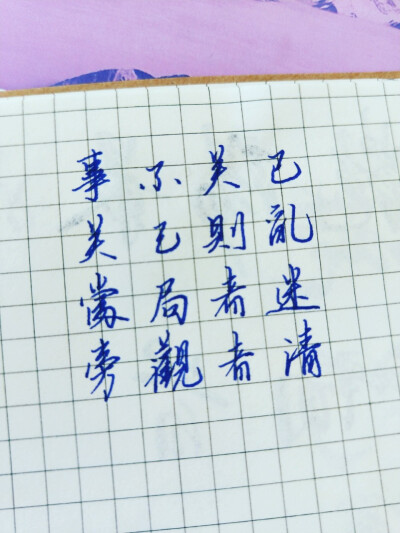 事不关己
关己则乱
当局者迷
旁觀者清